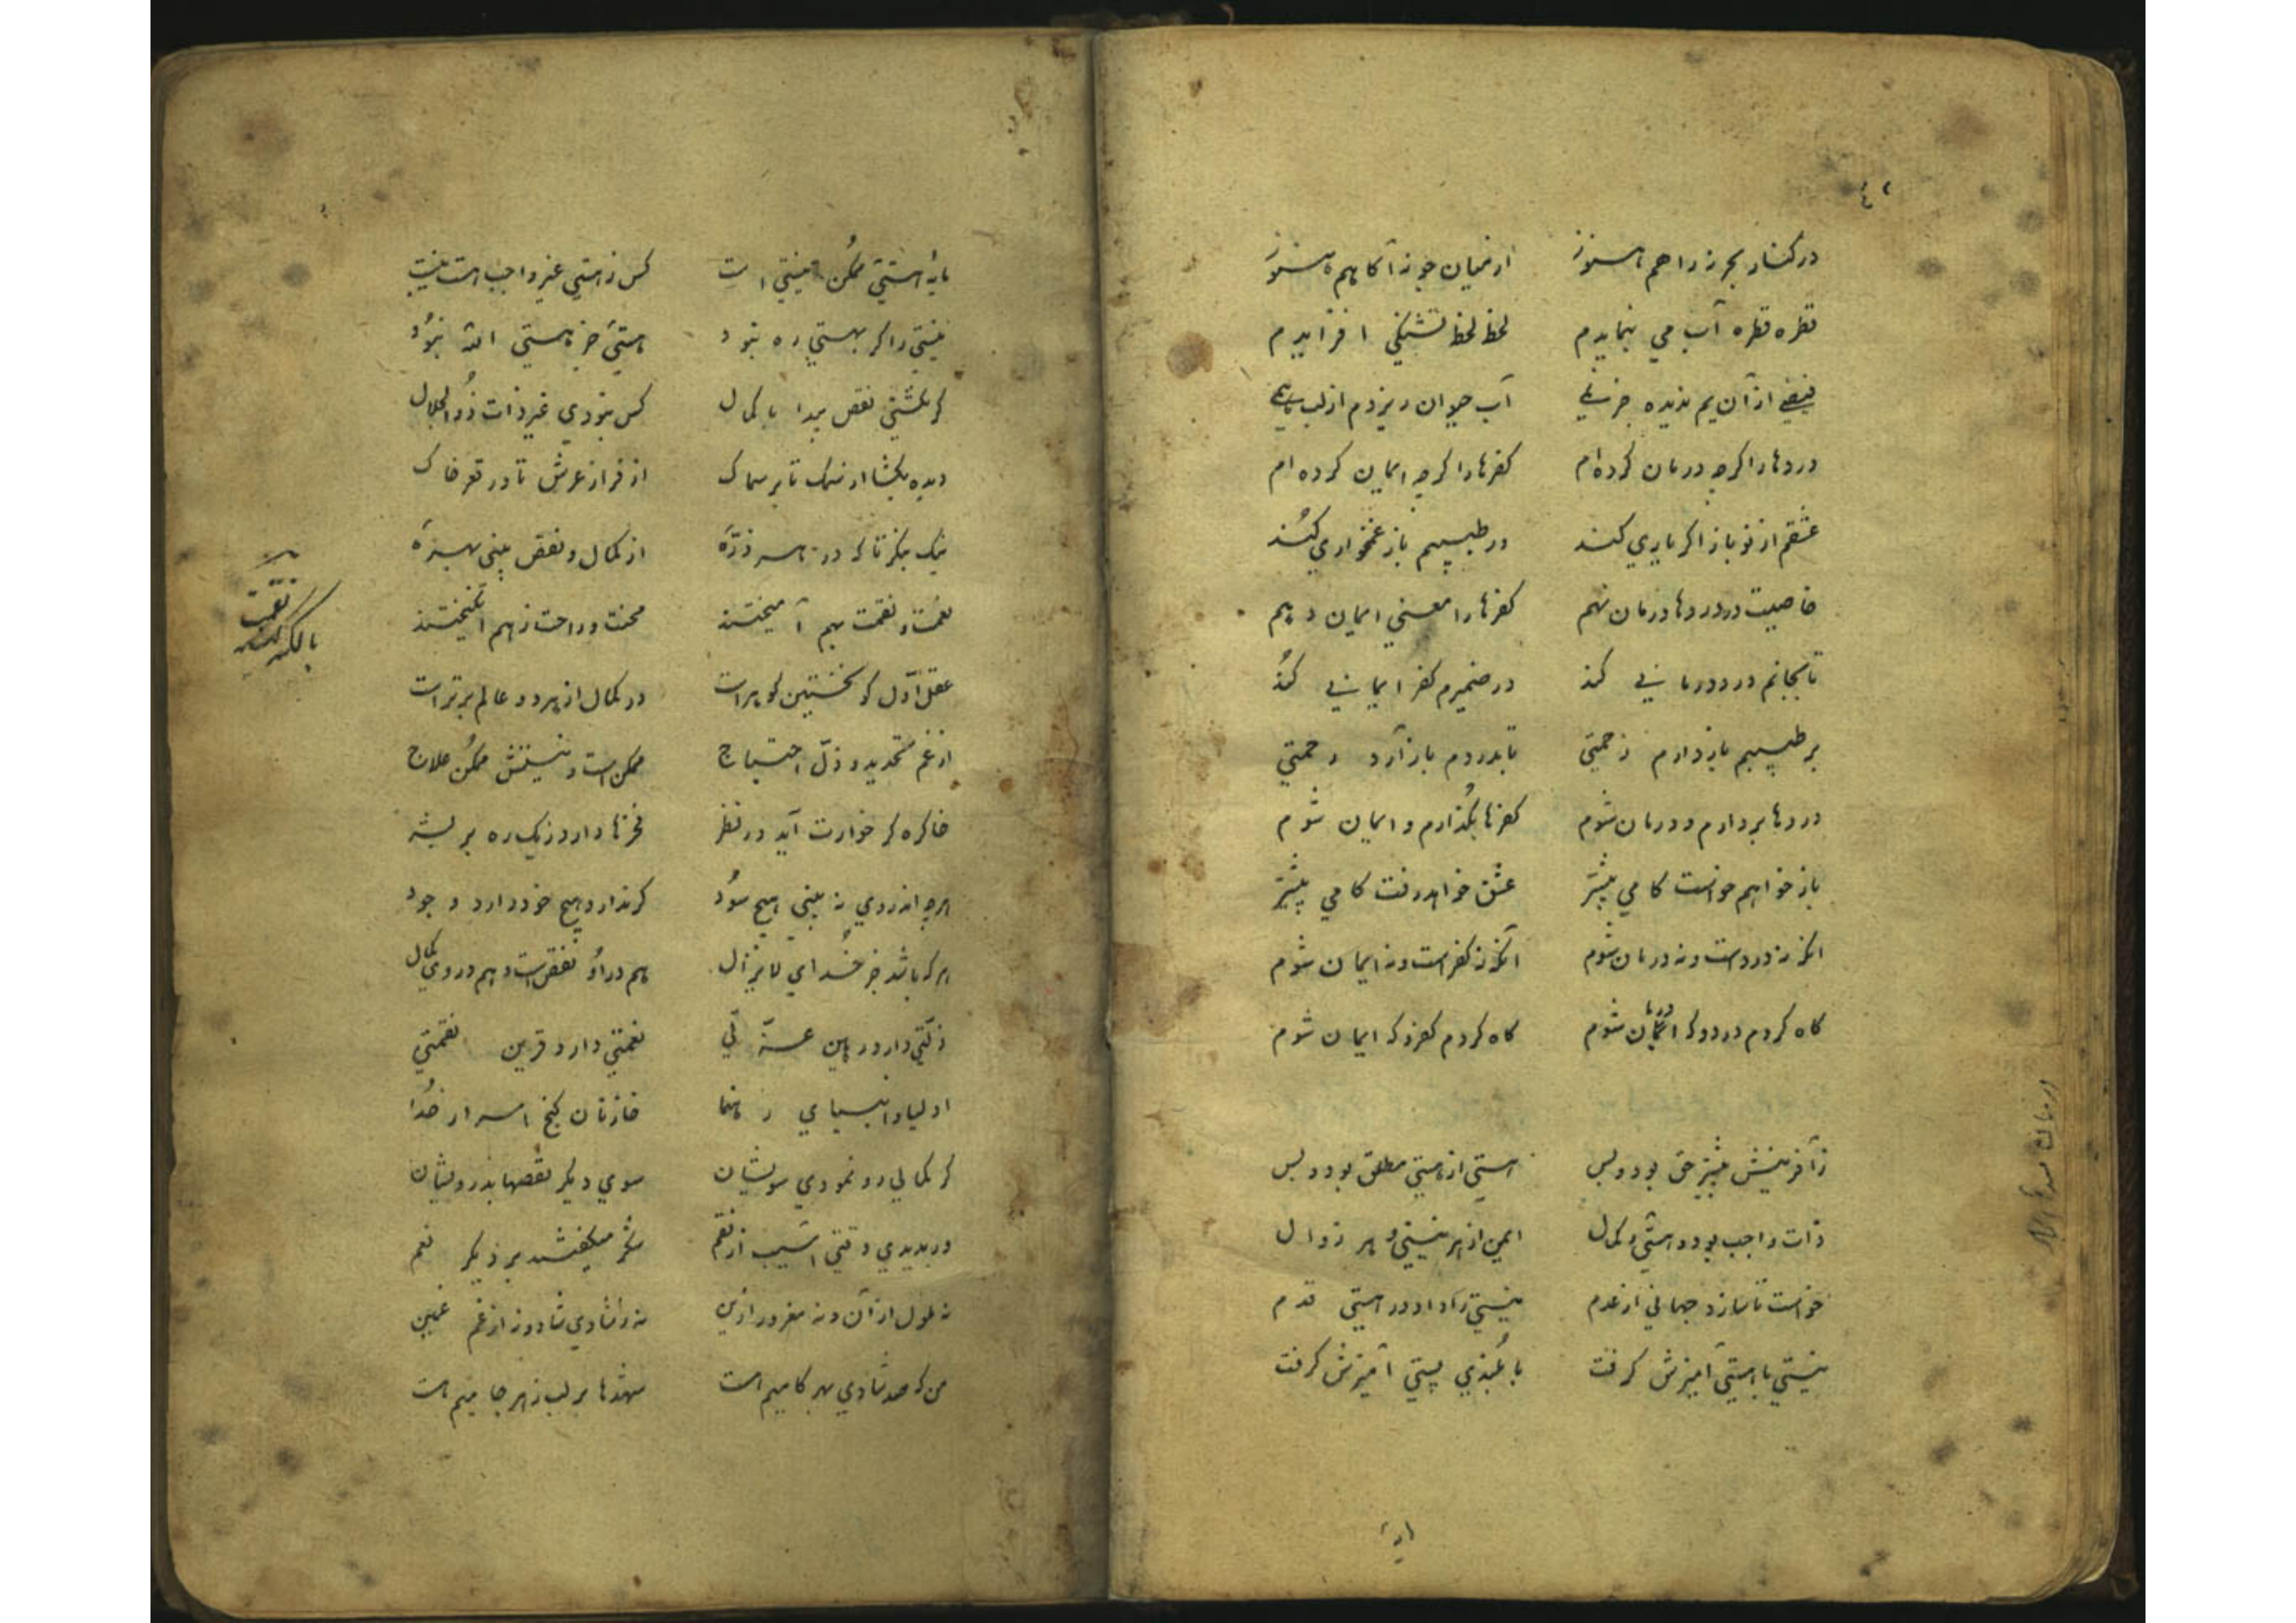 در کنار بحر زد راهم هنوز از میان جو نه آگاهم هنوز
قطره قطره آب می بنمایدم لحظه لحظه تشنگی افزایدم
از آن یم ندیده جز نمی آب حیوان ریزدم از لب همی
دردها را گرچه درمان کرده‌ام کفرها را گرچه ایمان کرده‌ام
عشقم از نو باز اگر یاری کند ور طبیبم باز غمخواری کند
خاصیت در دردها درمان نهم کفرها را معنی ایمان دهم
تا بجانم درد درمانی کند در ضمیرم کفر ایمانی کند
بر طبیبم باز دارم زحمتی تا بدردم باز آرد رحمتی
دردها بردارم و درمان شوم کفرها بگذارم و ایمان شوم
باز خواهم خواست کامی بیشتر عشق خواهد رفت کامی پیشتر
آنکه نه دردست و نه درمان شوم آنکه نه کفرست و نه ایمان شوم
گاه گردم درد و گه درمان شوم گاه گردم کفر و گه ایمان شوم
ز آفرینش پیشتر حق بود و بس هستی از هستی مطلق بود و بس
ذات واجب بود و هستی و کمال ایمن از هر نیستی و هر زوال
خواست تا سازد جهانی از عدم نیستی را داد در هستی قدم
نیستی با هستی آمیزش گرفت با بلندی پستی آمیزش گرفت
مایهٔ هستی ممکن نیستی است کس ز هستی غیر واجب است نیست
نیستی را گر بهستی ره نبود هستی جز هستی الله نبود
گر نگشتی نقص پیدا با کمال کس نبودی غیر ذات ذوالجلال
دیده بگشا از سمک تا بر سماک از فراز عرش تا در قعر خاک
نیک بنگر تا که در هر ذرّه از کمال و نقص بینی بهرهٔ
نعمت و نقمت بهم آمیختند محنت و راحت ز هم انگیختند
عقل اوّل کو نخستین گوهر است در کمال از هر دو عالم برتر است
از غم تحدید و ذلّ احتیاج ممکن است و نیستش ممکن علاج
خاک ره گر خوارت آید در نظر فخرها دارد ز یک ره بر بشر
هرچه اندر وی نه بینی هیچ سود گر ندارد هیچ خود دارد وجود
هرکه باشد جز خدای لایزال هم در او نقص است و هم در وی کمال
ذلّتی دارد رهین عزّتی نعمتی دارد قرین نقمتی
اولیا و انبیای رهنما خازنان گنج اسرار خدا
گر کمالی رو نمودی سویشان سوی دیگر نقصها بد رویشان
ور بدیدی وقتی آسیب از نقم شکر میگفتند بر دیگر نعم
نه ملول از آن و نه مغرور ازین نه ز شادی شاد و نه از غم غمین
من که صد شادی بهر کامیم است شهدها بر لب ز هر جامیم است
نقمت